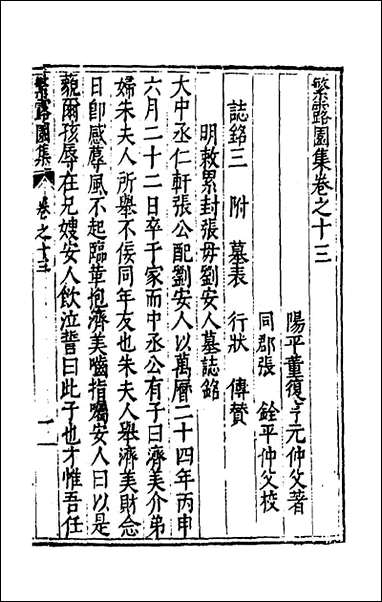 繁露園集卷之十三
陽平董復亨元仲父著
同郡張　銓平仲父校
誌銘三　附　墓表　行狀　傳贊
明敕累封張母劉安人墓誌銘
大中丞仁軒張公配劉安人以萬曆二十四年丙申
六月二十二日卒于家而中丞公有子曰濟美介弟
婦朱夫人所舉不佞同年友也朱夫人舉濟美財念
日卽感蓐風不起臨革抱濟美嚙指囑安人曰以是
藐爾孩辱在兄嫂安人飮泣誓曰此子也才惟吾任
繁露園集
卷之十三
一